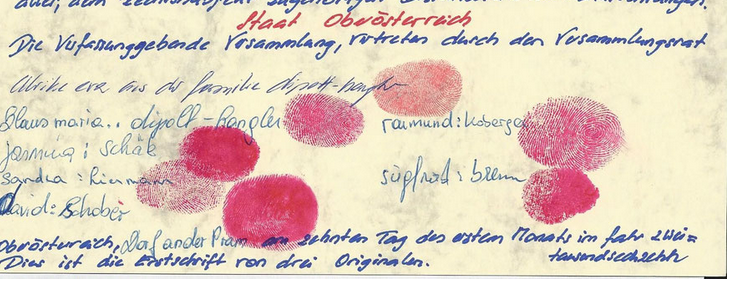 Staat Oberösterreich
Die Verfassunggebende Versammlung, vertreten durch den Versammlungsrat
Ulrike eva aus der familie dipolt-hangler
Klaus maria.. dipolt-hangler
raimund: koberger
jasmina: schak
sandra:
siegfried: brenn
david: Schober
Oberösterreich, Dorf an der Pram am zehnten Tag des ersten Monats im Jahr zwei=
Dies ist die Erstschrift von drei Originalen.
tausendsechzehn